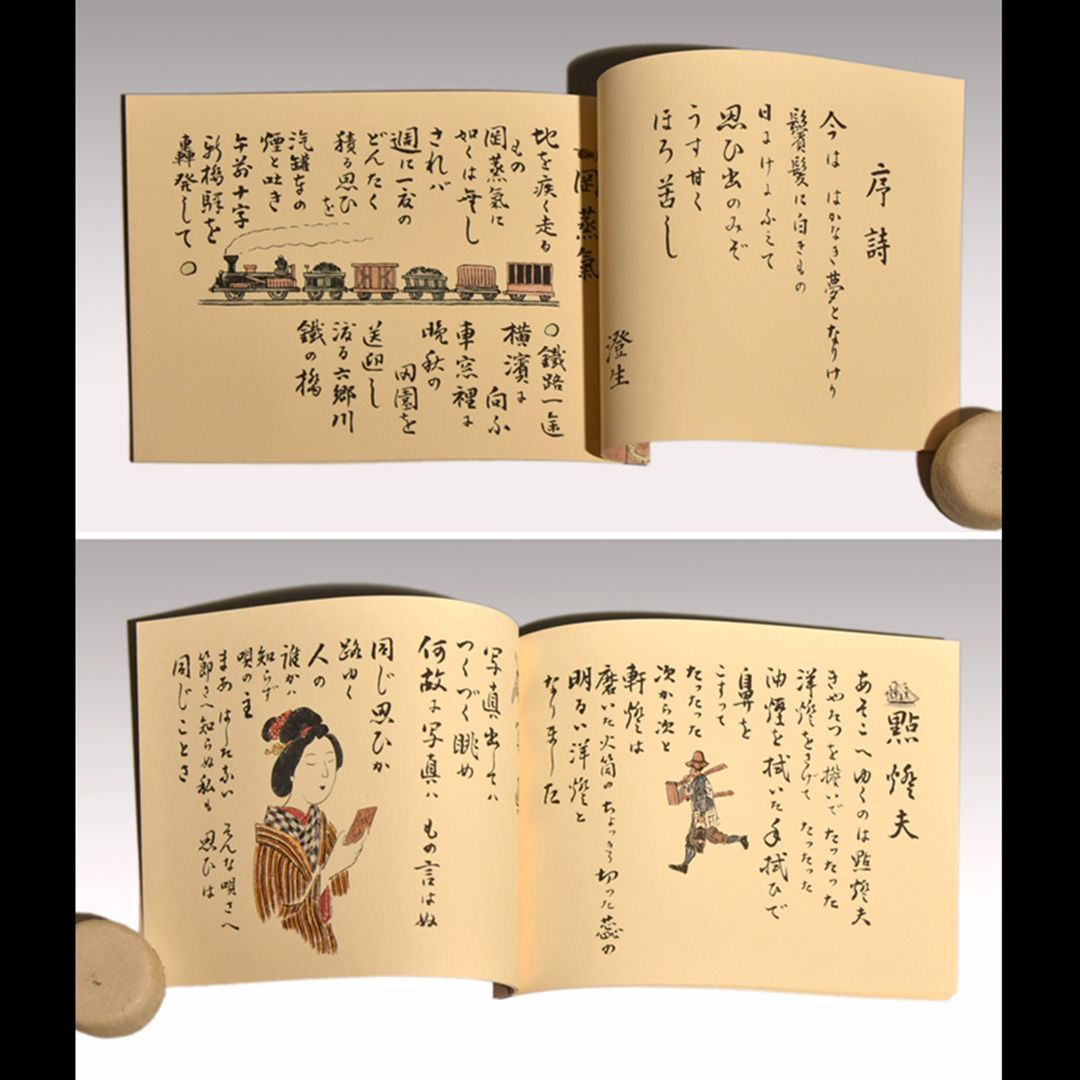 序詩
今は はかなき夢となりけり
鬢髪に白きもの
日にけにふえて
思ひ出のみぞ
うす甘く
ほろ苦し
澄生
岡蒸氣
地を疾く走る
もの
岡蒸氣に
如くは無し
されバ
週に一度の
どんたく
積る思ひを
汽罐車の
煙と吐き
午前十字
新橋驛を
轟発して
鐵路一途
横濱に向ふ
車窓裡に
晩秋の
田園を
送迎し
渡る六郷川
鐵の橋
點燈夫
あそこへゆくのは點燈夫
きやたつを擔いで たったった
洋燈をさげて たったった
油煙を拭いた手拭ひで
鼻を
こすって
たったった
次から次と
軒燈は
磨いた火筒の ちょっきり切った蕊の
明るい洋燈と
なりました
写真出してハ
つくづく眺め
何故に写真ハ もの言はぬ
同じ思ひか
路ゆく
人の
誰かハ
知らず
唄の主
まあ はしたない そんな唄さへ
節さへ知らぬ私も 思ひは
同じことさ